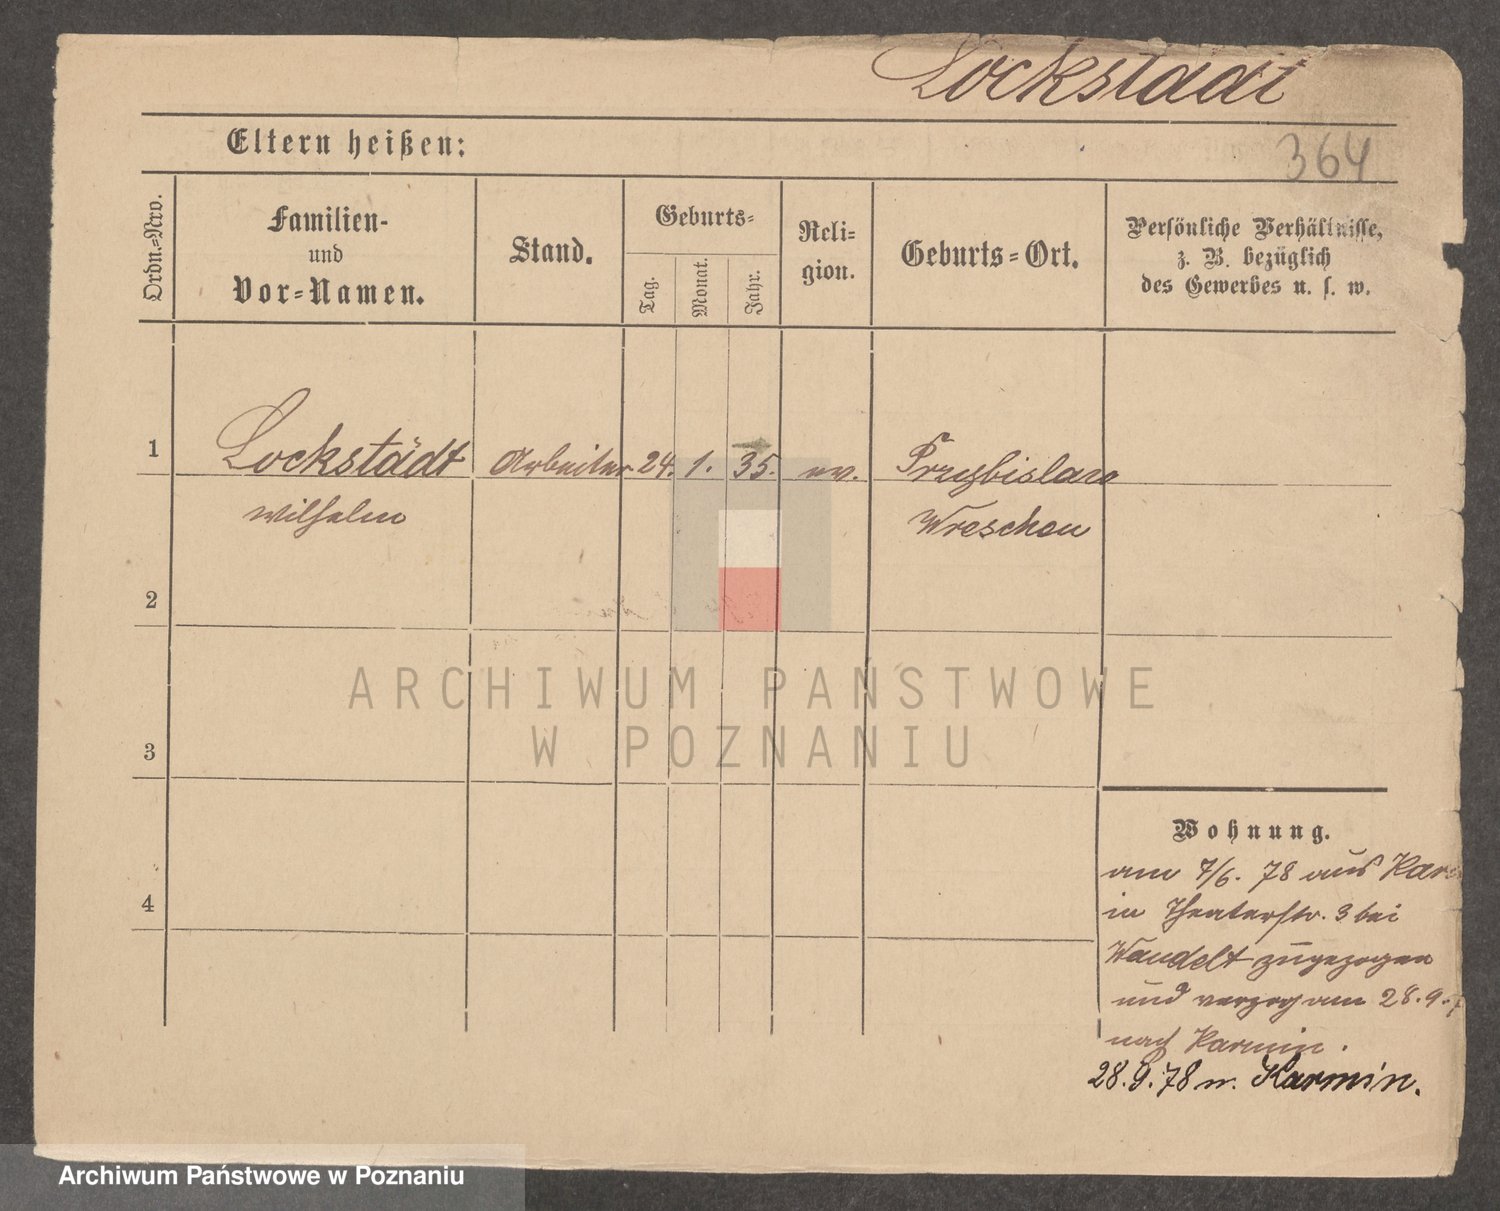 Lockstädt
Eltern heißen:
364
Ordn.=Nro.
Familien-
und
Vor=Namen.
Stand.
Geburts=
Tag.
Monat.
Jahr.
Reli=
gion.
Geburts=Ort.
Persönliche Verhältnisse,
z. B. bezüglich
des Gewerbes u. s. w.
1 Lockstädt Arbeiter 24. 1. 35. ev. Przybislaw
Wilhelm Wreschen
2
ARCHIWUM PAŃSTWOWE
W POZNANIU
3
Wohnung.
am 7/6. 78 aus
4
in Theaterstr. 3 bei
Wandelt zugezogen
und verzog am 28.9.7
nach Karmin.
28.9.78 n. Karmin.
Archiwum Państwowe w Poznaniu